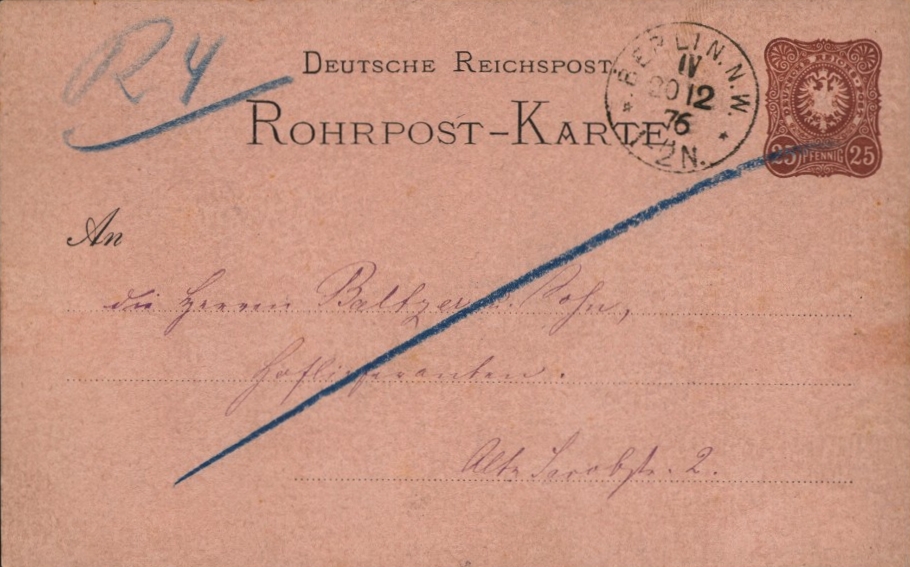 R 4
DEUTSCHE REICHSPOST.
ROHRPOST-KARTE.
BERLIN. N.W.
IV
20 12
76
1-2 N.
25 PFENNIG 25
An
die Herren Baltzer u. Sohn,
Hoflieferanten.
Alte Jacobstr. 2.